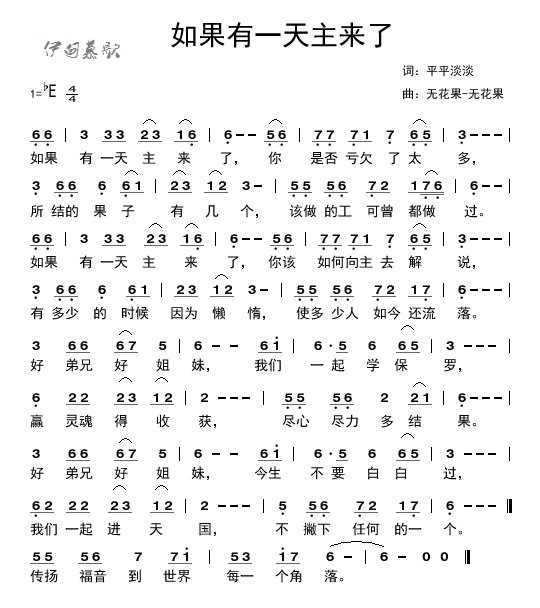 如果有一天主来了
伊甸慕歌
词：平平淡淡
1=♭E 4/4 曲：无花果-无花果
6 6 | 3 3 3 2 3 1 6 | 6 - - 5 6 | 7 7 7 1 7 6 5 | 3 - - -
如果 有 一天 主 来 了， 你 是否 亏欠 了 太 多，
3 6 6 6 6 1 | 2 3 1 2 3 - | 5 5 5 6 7 2 1 7 6 | 6 - -
所 结的 果 子 有 几 个， 该做 的工 可曾 都做 过。
6 6 | 3 3 3 2 3 1 6 | 6 - - 5 6 | 7 7 7 1 7 6 5 | 3 - -
如果 有 一天 主 来 了， 你该 如何向主 去 解 说，
3 6 6 6 6 1 | 2 3 1 2 3 - | 5 5 5 6 7 2 1 7 | 6 - - - |
有 多少 的 时候 因为 懒 惰， 使多 少人 如今 还流 落。
3 6 6 6 7 5 | 6 - - 6 1 | 6 · 5 6 6 5 | 3 - - - |
好 弟兄 好 姐 妹， 我们 一 起 学 保 罗，
6 2 2 2 3 1 2 | 2 - - - | 5 5 5 6 2 2 1 | 6 - - - |
赢 灵魂 得 收 获， 尽心 尽力 多 结 果。
3 6 6 6 7 5 | 6 - - 6 1 | 6 · 5 6 6 5 | 3 - - - |
好 弟兄 好 姐 妹， 今生 不 要 白 白 过，
6 2 2 2 2 3 1 2 | 2 - - - | 5 5 6 7 2 1 7 | 6 - - - ‖
我们 一起 进 天 国， 不 撇下 任何 的一 个。
5 5 5 6 7 7 1 | 5 3 1 7 6 - | 6 - 0 0 ‖
传扬 福音 到 世界 每一 个角 落。